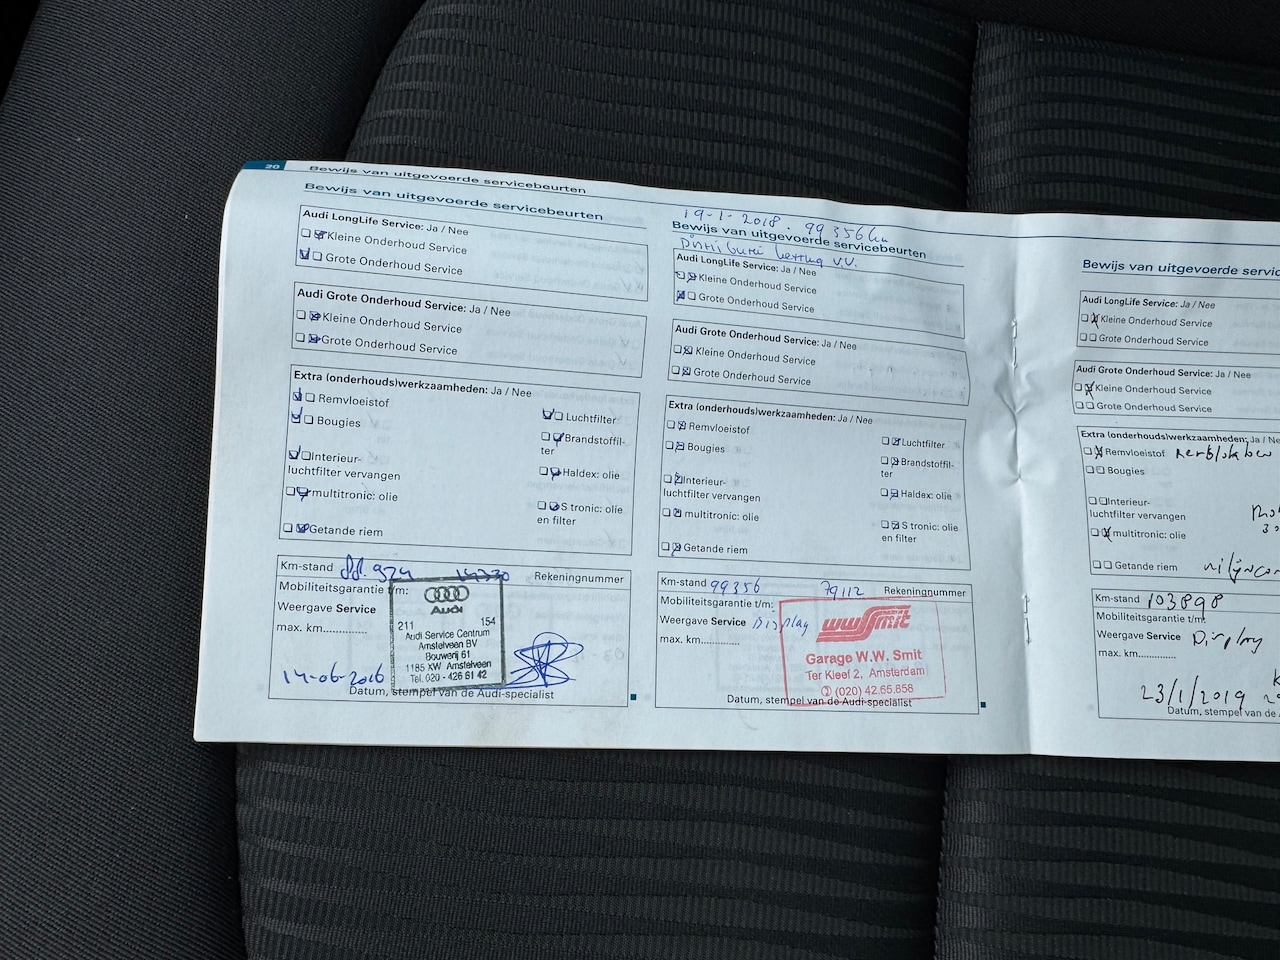 20 Bewijs van uitgevoerde servicebeurten
Bewijs van uitgevoerde servicebeurten
Audi LongLife Service: Ja / Nee
Kleine Onderhoud Service
Grote Onderhoud Service
Audi Grote Onderhoud Service: Ja / Nee
Kleine Onderhoud Service
Grote Onderhoud Service
Extra (onderhouds)werkzaamheden: Ja / Nee
Remvloeistof
Bougies
Interieur-
luchtfilter vervangen
multitronic: olie
Getande riem
Luchtfilter
Brandstoffil-
ter
Haldex: olie
S tronic: olie
en filter
Km-stand
Rekeningnummer
Mobiliteitsgarantie t/m:
Weergave Service
max. km..............
Audi
211 154
Audi Service Centrum
Amstelveen BV
Bouwerij 61
1185 XW Amstelveen
Tel. 020 - 426 61 42
14-06-2016
Datum, stempel van de Audi-specialist
19-1-2018. 99356km
Bewijs van uitgevoerde servicebeurten
Audi LongLife Service: Ja / Nee
Kleine Onderhoud Service
Grote Onderhoud Service
Audi Grote Onderhoud Service: Ja / Nee
Kleine Onderhoud Service
Grote Onderhoud Service
Extra (onderhouds)werkzaamheden: Ja / Nee
Remvloeistof
Bougies
Interieur-
luchtfilter vervangen
multitronic: olie
Getande riem
Luchtfilter
Brandstoffil-
ter
Haldex: olie
S tronic: olie
en filter
Km-stand 99356 79112 Rekeningnummer
Mobiliteitsgarantie t/m:
Weergave Service Display
max. km..............
wwsmit
Garage W.W. Smit
Ter Kleef 2, Amsterdam
(020) 42.65.858
Datum, stempel van de Audi-specialist
Bewijs van uitgevoerde servic
Audi LongLife Service: Ja / Nee
Kleine Onderhoud Service
Grote Onderhoud Service
Audi Grote Onderhoud Service: Ja / Nee
Kleine Onderhoud Service
Grote Onderhoud Service
Extra (onderhouds)werkzaamheden: Ja / Ne
Remvloeistof
Bougies
Interieur-
luchtfilter vervangen
multitronic: olie
Getande riem
Km-stand 103898
Mobiliteitsgarantie t/m:
Weergave Service Display
max. km..............
23/1/2019
Datum, stempel van de